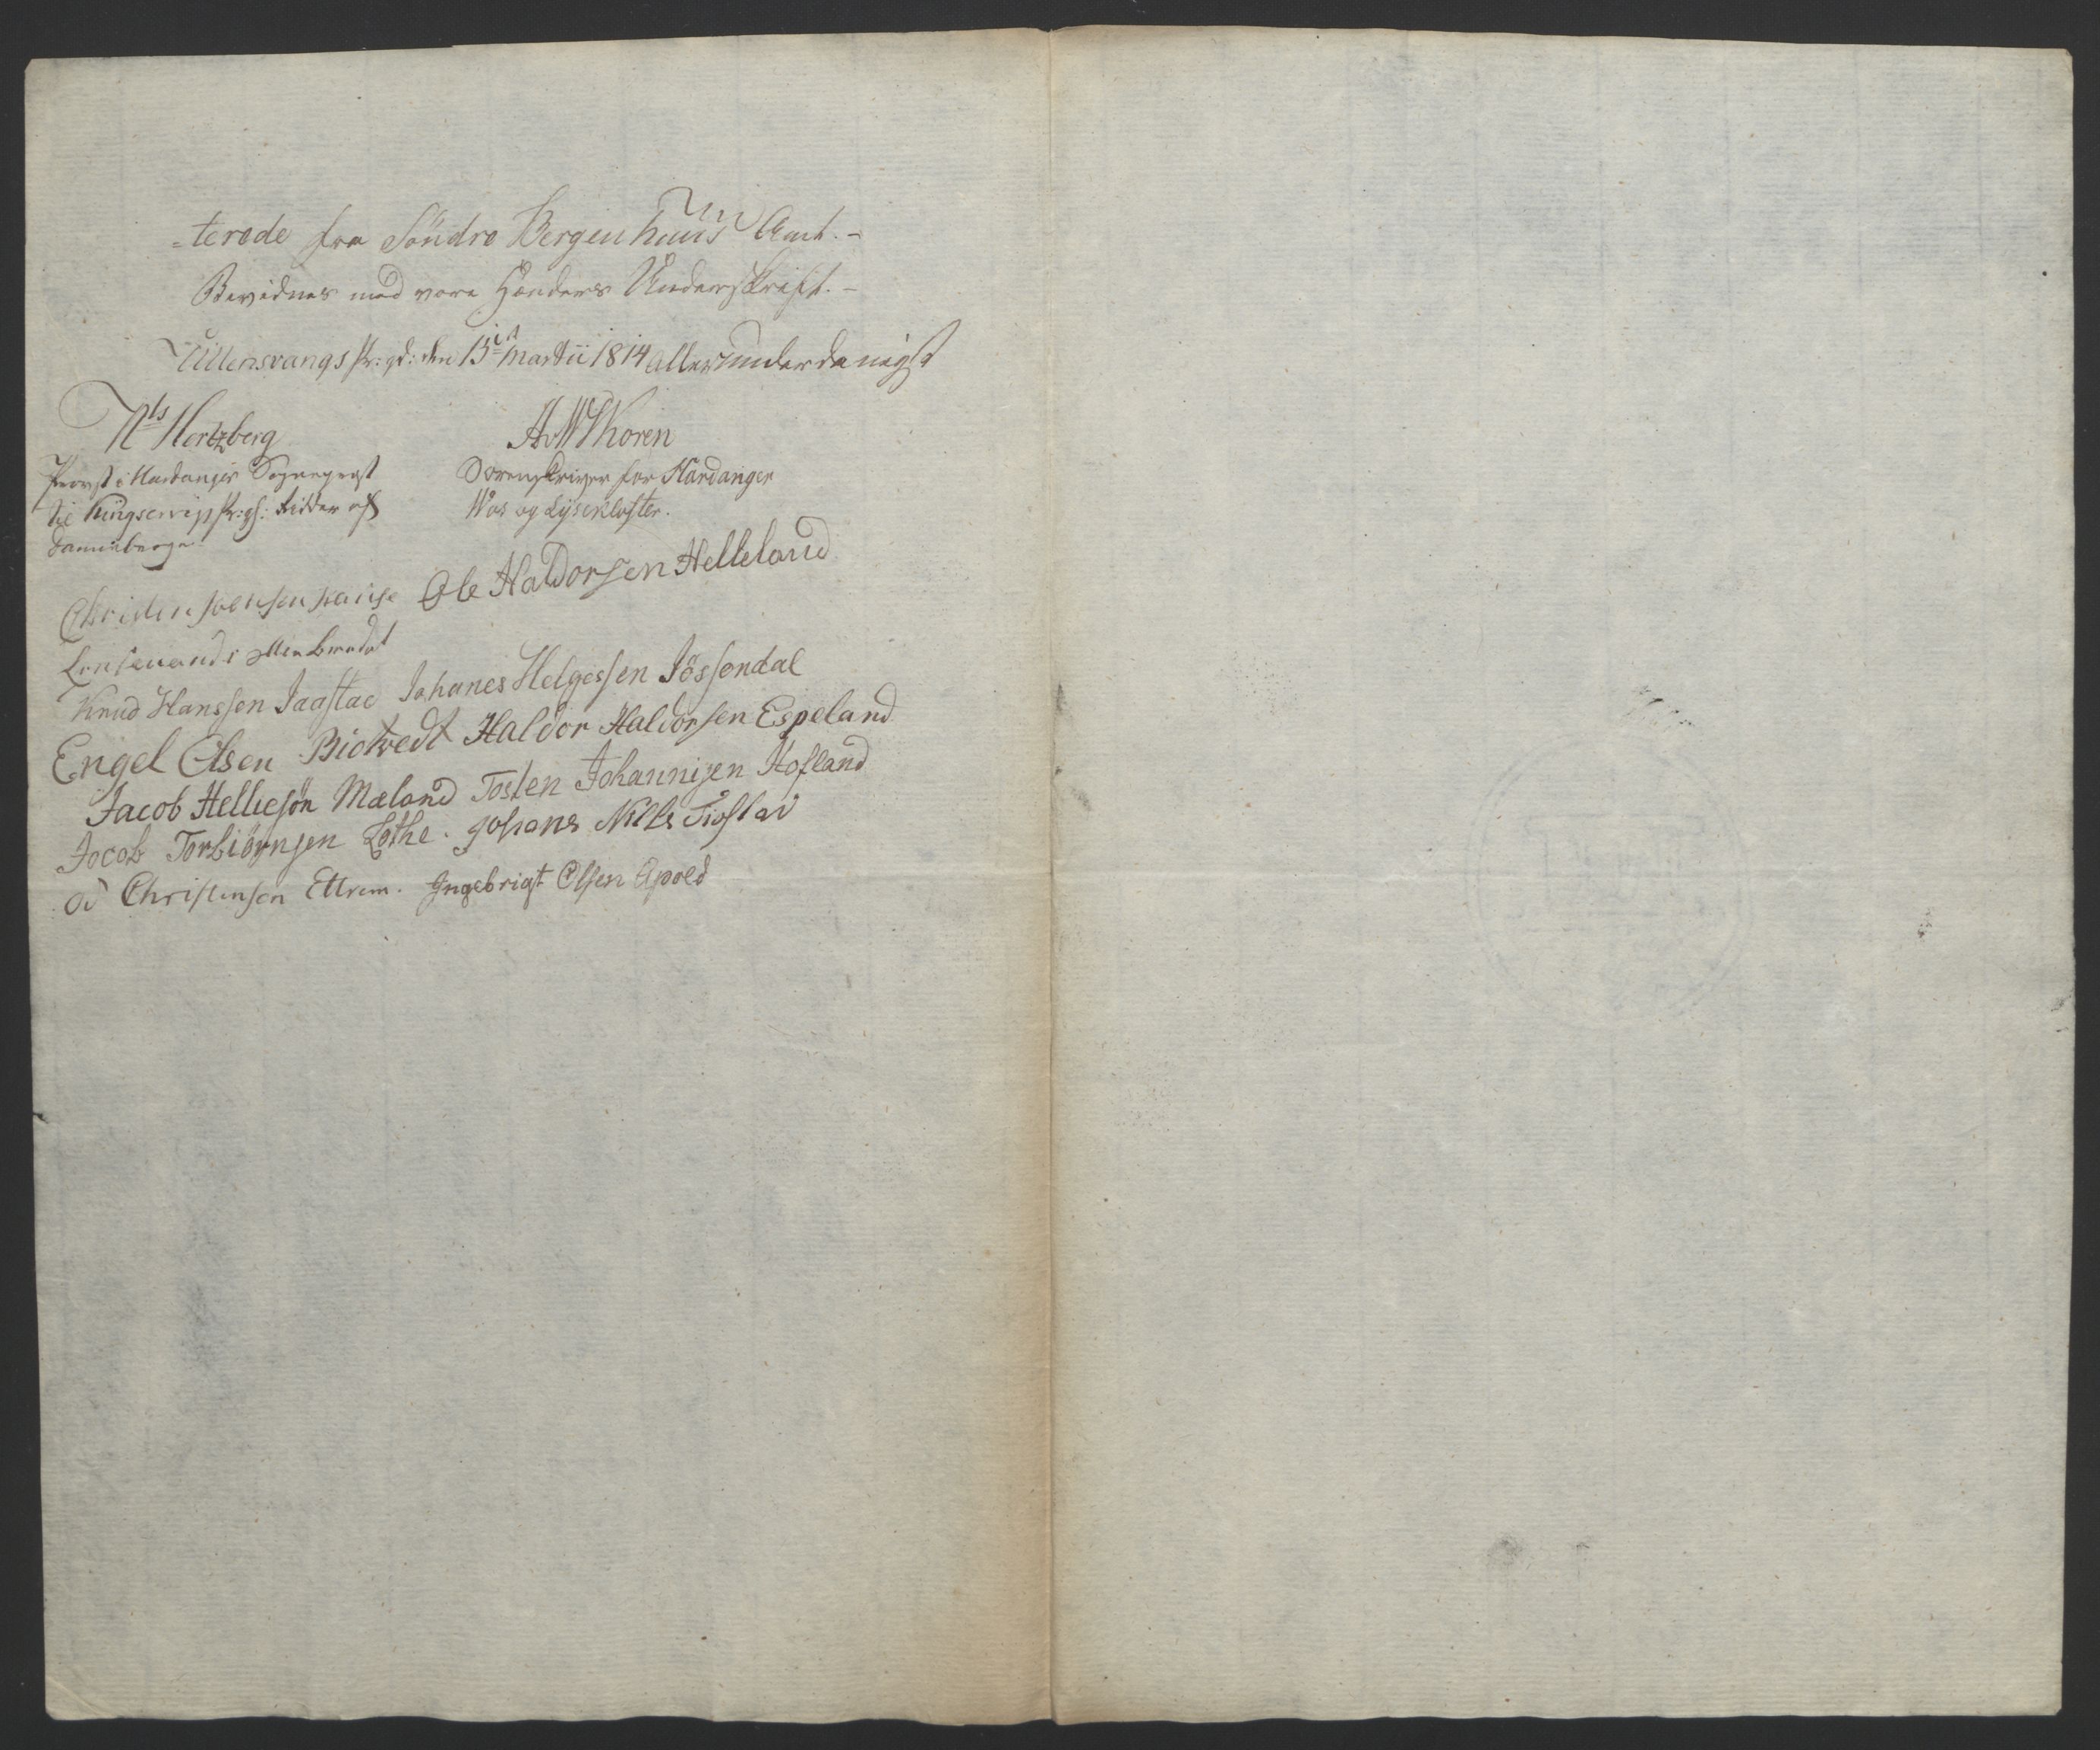 =terede fra Søndre Bergenhuus Amt. -
Bevidnes med vore Hænders Underskrift. -
Ullensvangs Pr: gd: den 13de Martii 1814 allerunderdanigst
Nls Hertzberg
Provst i Hardanger Sognepræst
til Kingservigs Pr: gj: Ridder af
Dannebroge
AvWKoren
Sorenskriver for Hardanger
Wos og Lysekloster.
Ole Haldorsen Helleland
Lensmand
Knud Hanssen Jaastad Johanes Helgessen Jössendal
Engel Olsen Biotvedt Haldor Haldorsen Espeland
Jacob Hellieson Mæland Tosten Johannisen Hofland
Jacob Torbiörnsen Lothe. Johans Nills
Od Christensen Ettrem. Ingebrigt Olsen Apold